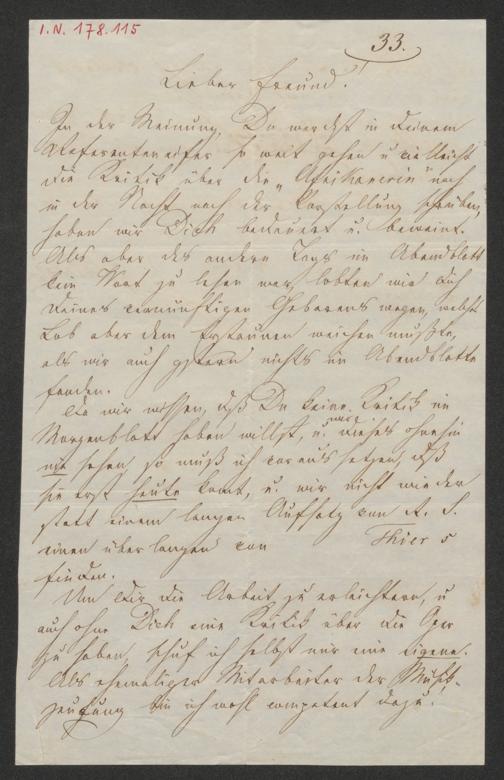 I.N. 178.115
33.
Lieber Freund!
In der Meinung, Du werdest in Deinem
Referenteneifer so weit gehen u vielleicht
die Kritik über die „Afrikanerin" noch
in der Nacht nach der Vorstellung schreiben,
haben wir Dich bedauert u. beweint.
Als aber des andern Tags im Abendblatt
kein Wort zu lesen war, lobten wir Dich
Deines vernünftigen Gebarens wegen, welches
Lob aber dem Erstaunen weichen mußte,
als wir auch gestern nichts im Abendblatte
fanden.
Da wir wissen, daß Du keine Kritik im
Morgenblatt haben willst, u. wir dieses ohnehin
nie sehen, so muß ich voraussetzen, daß
sie erst heute komt, u. wir nicht wieder
statt einem langen Aufsatz von R. S.
einen überlangen von Thier s
finden.
Um Dir die Arbeit zu erleichtern, u
auch ohne Dich eine Kritik über die Oper
zu haben, schuf ich selbst mir eine eigene.
Als ehemaliger Mitarbeiter der Musik-
zeitung bin ich wohl competent dazu.